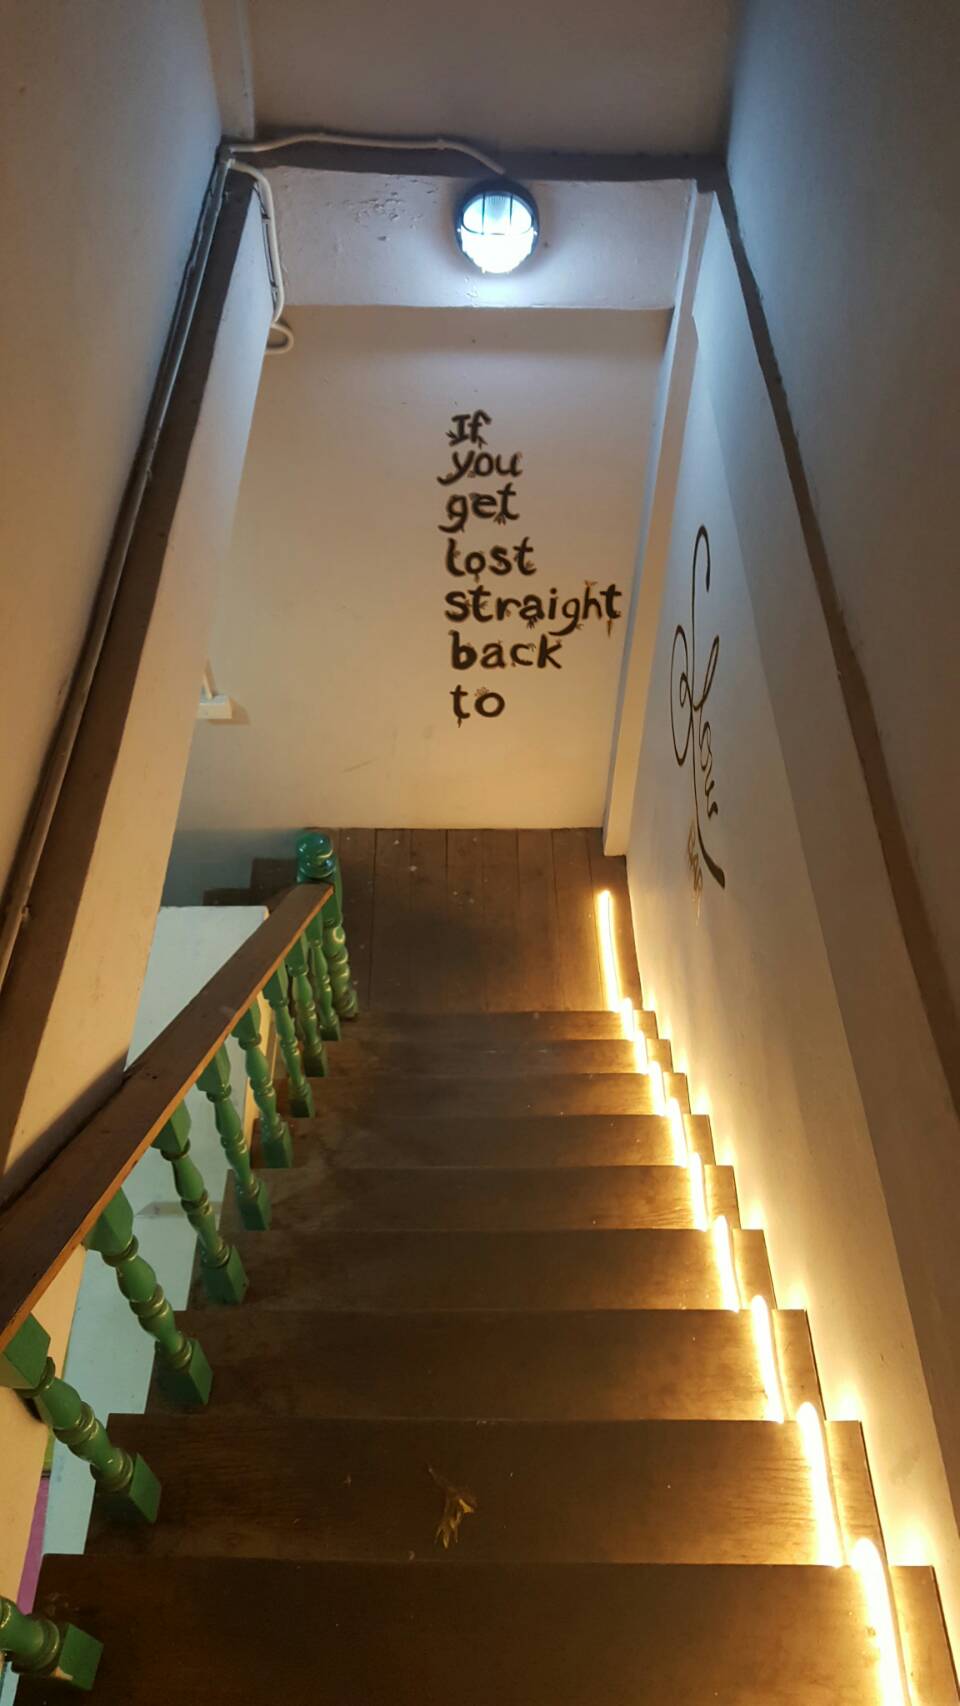 If
you
get
lost
straight
back
to